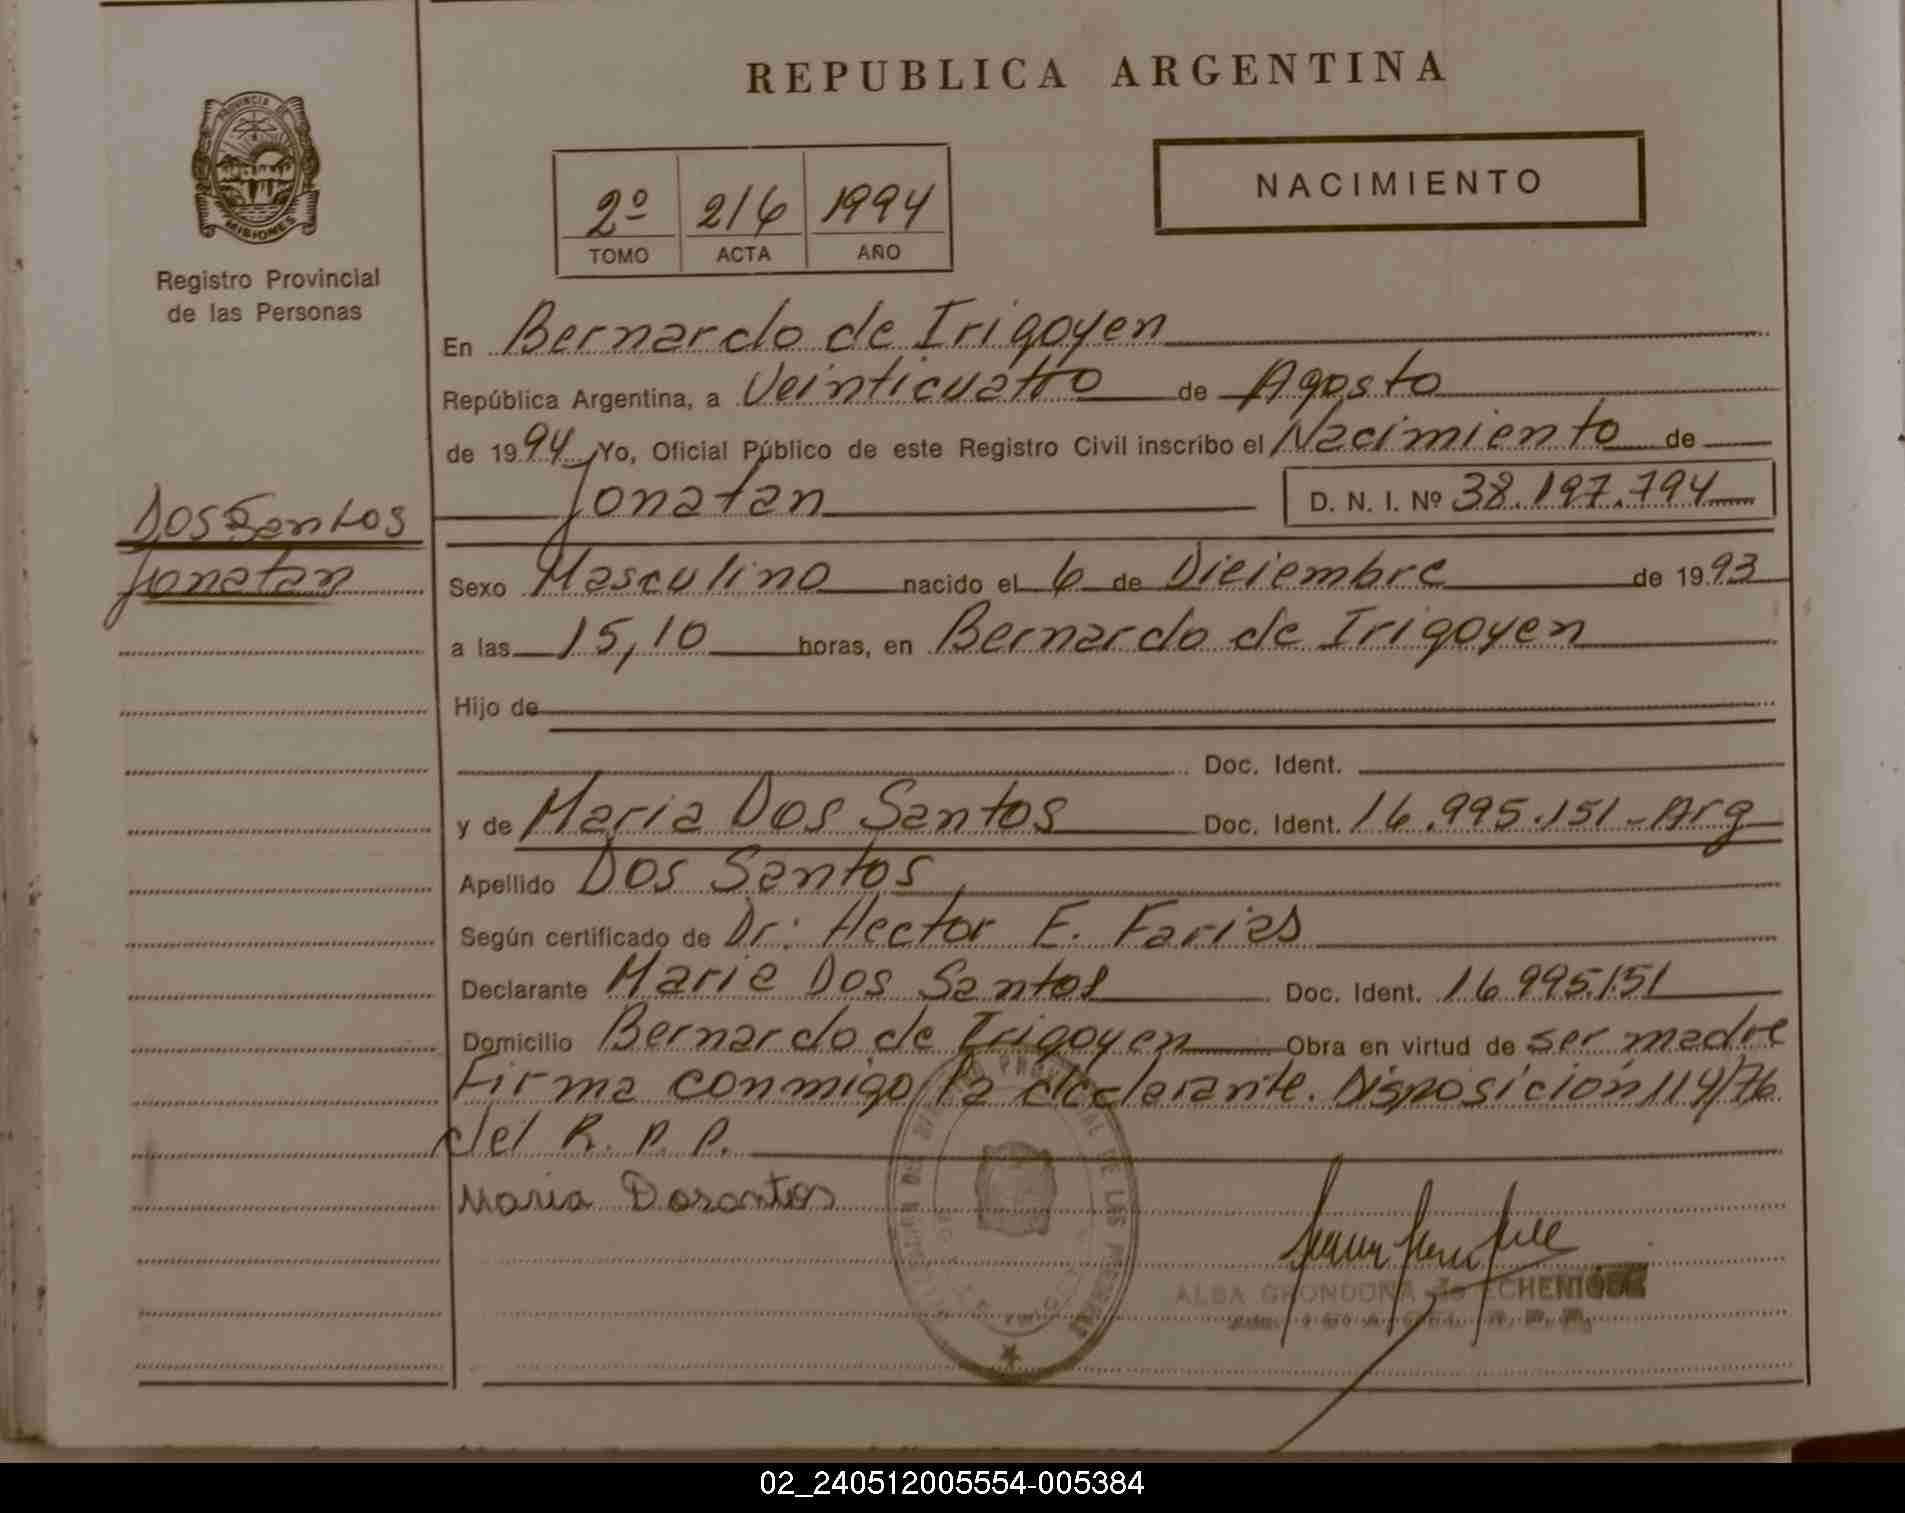 REPUBLICA ARGENTINA
PROVINCIA DE
MISIONES
Registro Provincial
de las Personas
2º 216 1994
TOMO ACTA AÑO
NACIMIENTO
En Bernardo de Irigoyen
República Argentina, a Veinticuatro de Agosto
de 1994 Yo, Oficial Público de este Registro Civil inscribo el Nacimiento de
Jonatan D. N. I. Nº 38.197.794
Dos Santos
Jonatan
Sexo Masculino nacido el 6 de Diciembre de 1993
a las 15,10 horas, en Bernardo de Irigoyen
Hijo de
Doc. Ident.
y de Maria Dos Santos Doc. Ident. 16.995.151-Arg
Apellido Dos Santos
Según certificado de Dr: Hector E. Farias
Declarante Maria Dos Santos Doc. Ident. 16.995.151
Domicilio Bernardo de Irigoyen Obra en virtud de ser madre
Firma conmigo la declarante. Disposición 114/76
del R. P. P.
Maria Dosantos
ALBA GRONDONA de ECHENIQUE
02_240512005554-005384